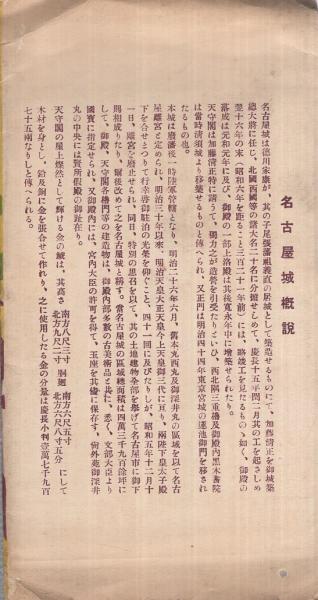 名古屋城概説
名古屋城は徳川家康が、其の子尾張藩祖義直の居城として築造せるものにて、加藤清正を御城築
總大將に任じ、北國西國等の諸大名二十名に分擔せしめて、慶長十五年閏二月其の工を起さしめ
翌十六年の末(昭和六年を距ること三百二十一年前)には、略竣工を見たるものゝ如く、御殿の
落成は元和元年に及び、御殿の一部上洛殿は其後寛永年中に増築せられたり。
天守閣は加藤清正特に請うて、獨力之が造營を引受たりといひ、西北隅三重櫓及御殿内黒木書院
は當時清須城より移築せるものと傳へられ、又正門は明治四十四年東京宮城の蓮池御門を移され
たるもの也。
本城は廢藩後一時陸軍管轄となり、明治二十六年六月、舊本丸西丸及御深井丸の區域を以て名古
屋離宮と定められ、明治三十年以來、明治天皇大正天皇今上天皇御三代に亘り、兩陛下皇太子殿
下を合せつつて行幸啓御駐泊の光榮を仰ぐこと、四十一回に及びたりしが、昭和五年十二月十
一日、離宮を廢止せられ、同日、特別の思召を以て、其の土地建物全部を擧げて名古屋市に御下
賜相成りたり、爾後改めて之を名古屋城と稱す。當名古屋城の區域總面積は四萬三千九百餘坪に
して、御殿、天守閣各櫓門等の建造物は、御殿内部多數の古美術品と共に、悉く、文部大臣より
國寶に指定せられ、又御殿内には、宮内大臣の許可を得て、玉座を其儘に保存す。尙外苑御深井
丸の中央には賢所假殿の御趾在り。
天守閣の屋上燦然として輝ける金の鯱は、其高さ 南方八尺三寸 北方八尺二寸 胴廻 南方六尺五寸 北方六尺八寸五分 にして
木材を身とし、鉛及銅に金を張合せて作れり、之に使用したる金の分量は慶長小判壹萬七千九百
七十五兩なりしと傳へられる。